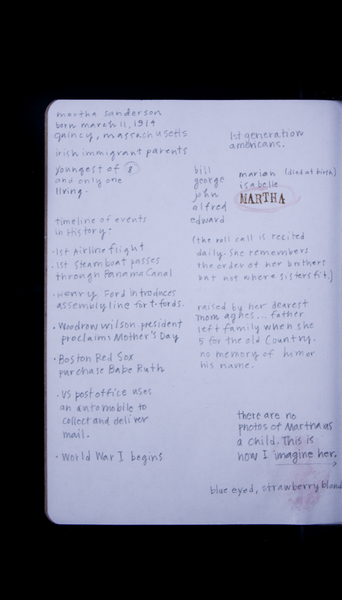 martha sanderson
born march 11, 1914
quincy, massachusetts
irish immigrant parents
youngest of 8
and only one
living.
timeline of events
in History:
· 1st Airline flight
· 1st Steamboat passes
through Panama Canal
· Henry Ford introduces
assembly line for T-fords.
· Woodrow Wilson president
proclaims Mother's Day
· Boston Red Sox
purchase Babe Ruth
· US post office uses
an automobile to
collect and deliver
mail.
· World War I begins
1st generation
americans.
bill
george
john
alfred
edward
marian (died at birth)
isabelle
MARTHA
(the roll call is recited
daily. she remembers
the order of her brothers
but not where sisters fit.)
raised by her dearest
mom agnes... father
left family when she
5 for the old country.
no memory of him or
his name.
there are no
photos of Martha as
a child. This is
how I imagine her.
blue eyed, strawberry blond